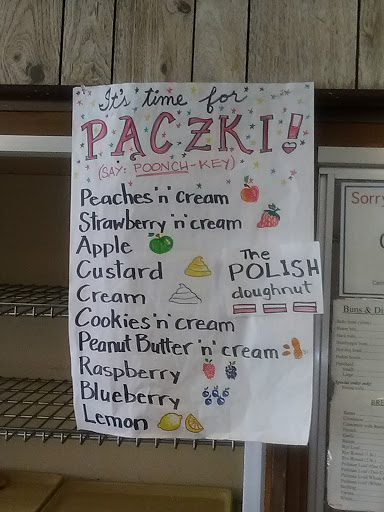 It's time for
PĄCZKI!
(SAY: POONCH-KEY)
Peaches 'n' Cream
Strawberry 'n' cream
Apple
Custard
Cream
Cookies 'n' cream
Peanut Butter 'n' cream
Raspberry
Blueberry
Lemon
The
POLISH
doughnut
Sorry
Buns & Di